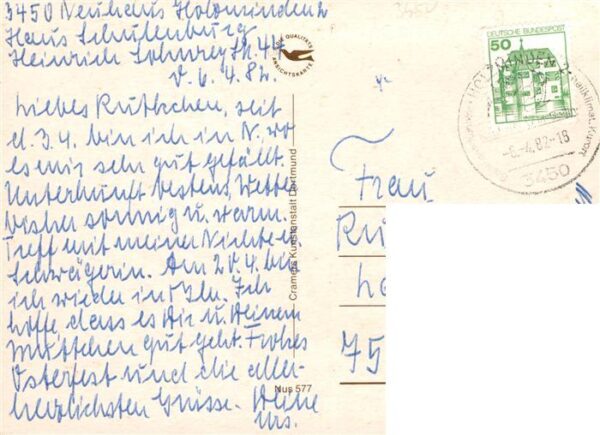 3450 Neuhaus Holzminden 2
Haus Schulenburg
Heinrich Sohnrey Str. 44
d. 6. 4. 82.
Liebes Ruthchen, seit
d. 3. 4. bin ich in N., wo
es mir sehr gut gefällt.
Unterkunft bestens, Wetter
bisher sonnig u. warm.
Treff mit meiner Nichte u.
Schwägerin. Am 20. 4. bin
ich wieder in Ich
hoffe, dass es Dir u. Deinem
Muttchen gut geht. Frohes
Osterfest und die aller-
herzlichsten Grüsse. Deine
Urs.
DIE QUALITÄTS
ANSICHTSKARTE
Cramers Kunstanstalt Dortmund
Nus 577
3450
DEUTSCHE BUNDESPOST
50
HOLZMINDEN 2
heilklimat. Kurort
-6.-4.82-18
3450
Frau
Ru
75